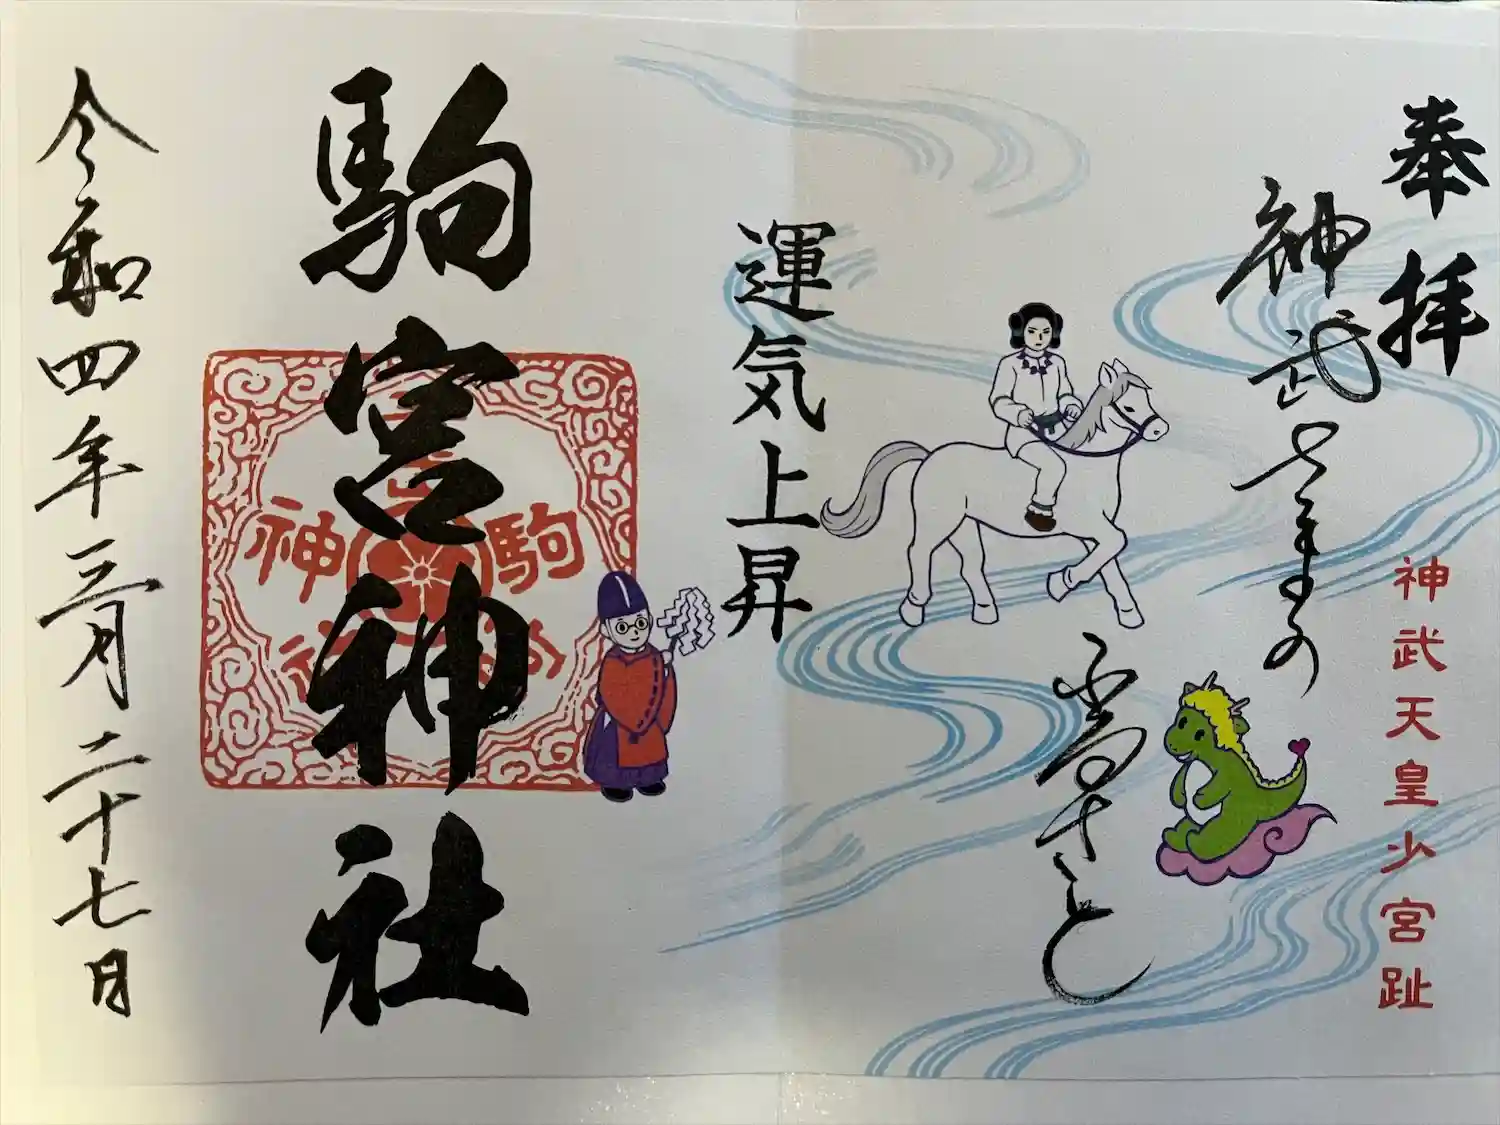 奉拝
神武さまの
神武天皇少宮趾
運気上昇
駒宮神社
駒
神
令和四年三月二十七日